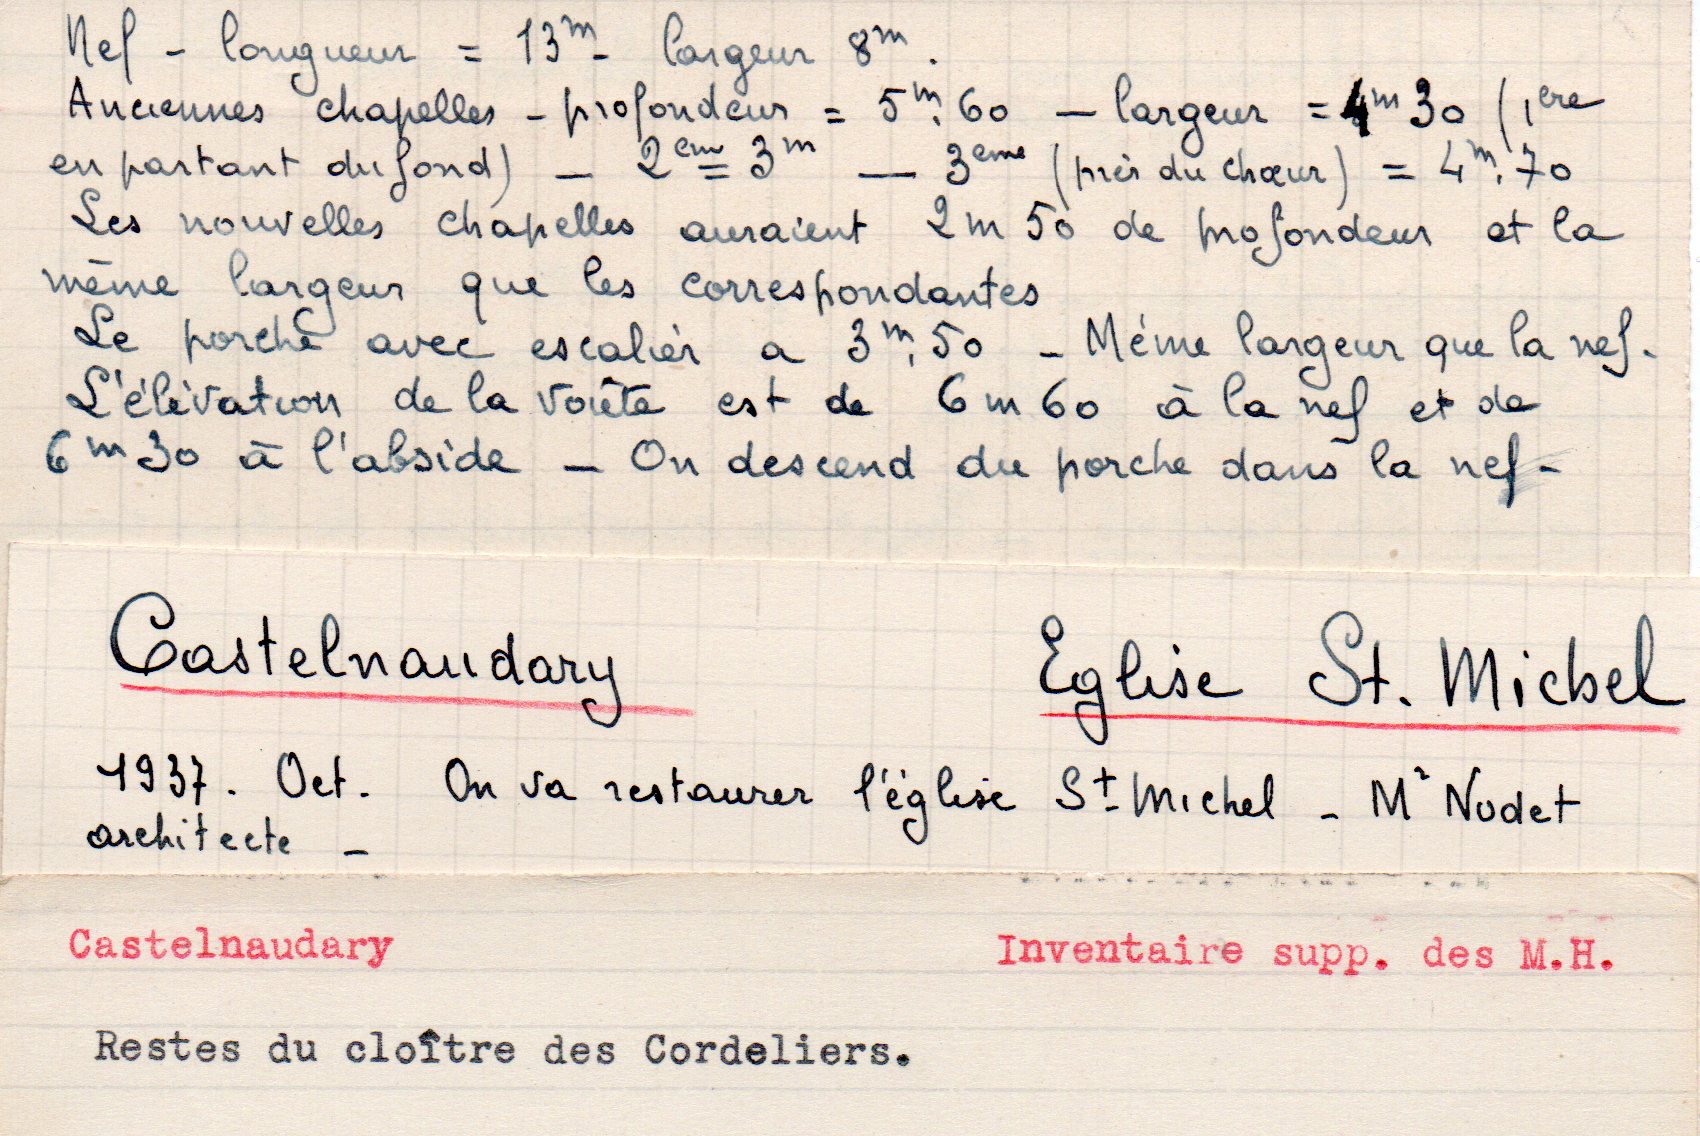 Nef - longueur = 13m - largeur 8m.
Anciennes chapelles - profondeur = 5m.60 - largeur = 4m 30 (1ere
en partant du fond) - 2eme = 3m - 3eme (près du chœur) = 4m.70
Les nouvelles chapelles auraient 2m 50 de profondeur et la
même largeur que les correspondantes
Le porche avec escalier a 3m.50 - Même largeur que la nef.
L'élévation de la voûte est de 6m60 à la nef et de
6m30 à l'abside - On descend du porche dans la nef -
Castelnaudary Eglise St. Michel
1937. Oct. On va restaurer l'église St-Michel - Mr Nodet
architecte -
Castelnaudary Inventaire supp. des M.H.
Restes du cloître des Cordeliers.